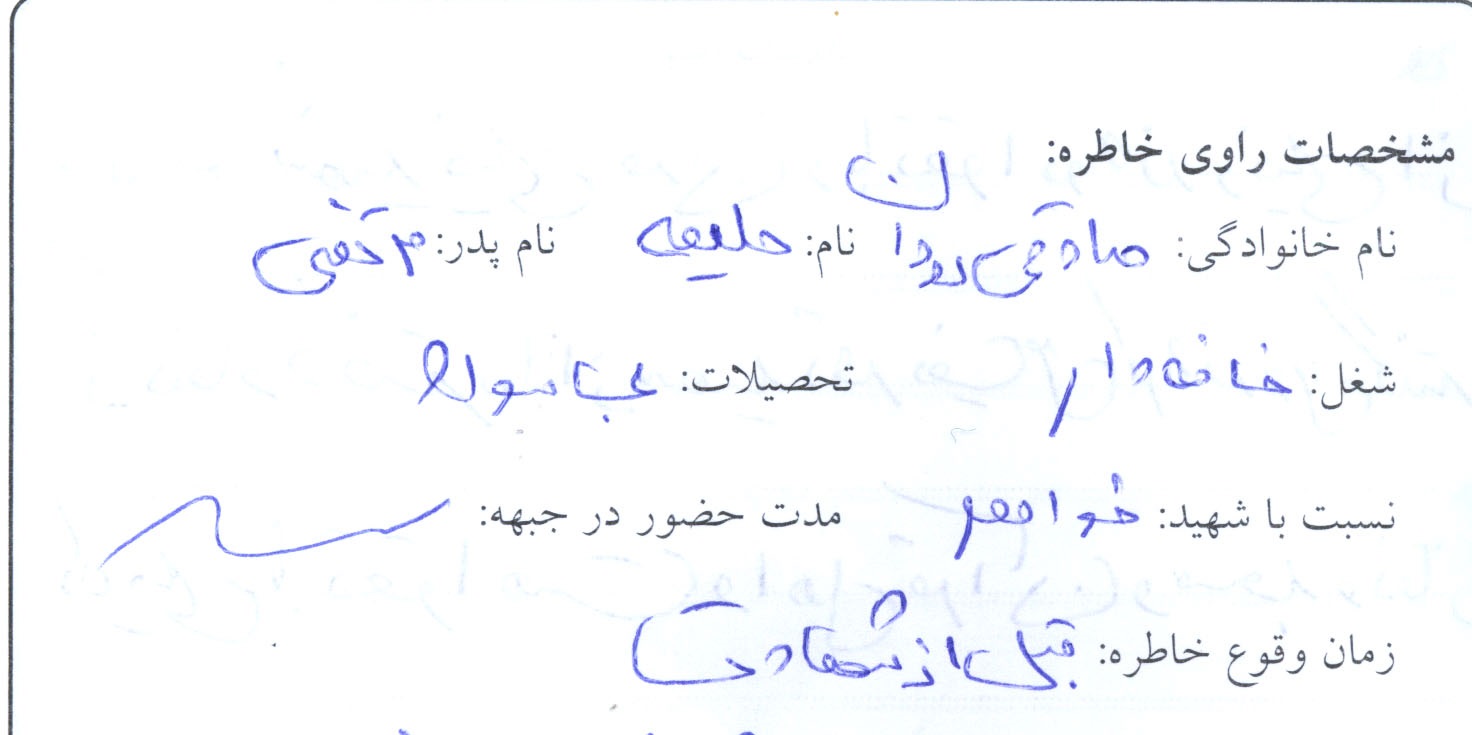 مشخصات راوی خاطره:
نام خانوادگی: صادقی رودان نام: حلیمه نام پدر: م تقی
شغل: خانه دار تحصیلات: بی سواد
نسبت با شهید: خواهر مدت حضور در جبهه:
زمان وقوع خاطره: قبل از شهادت